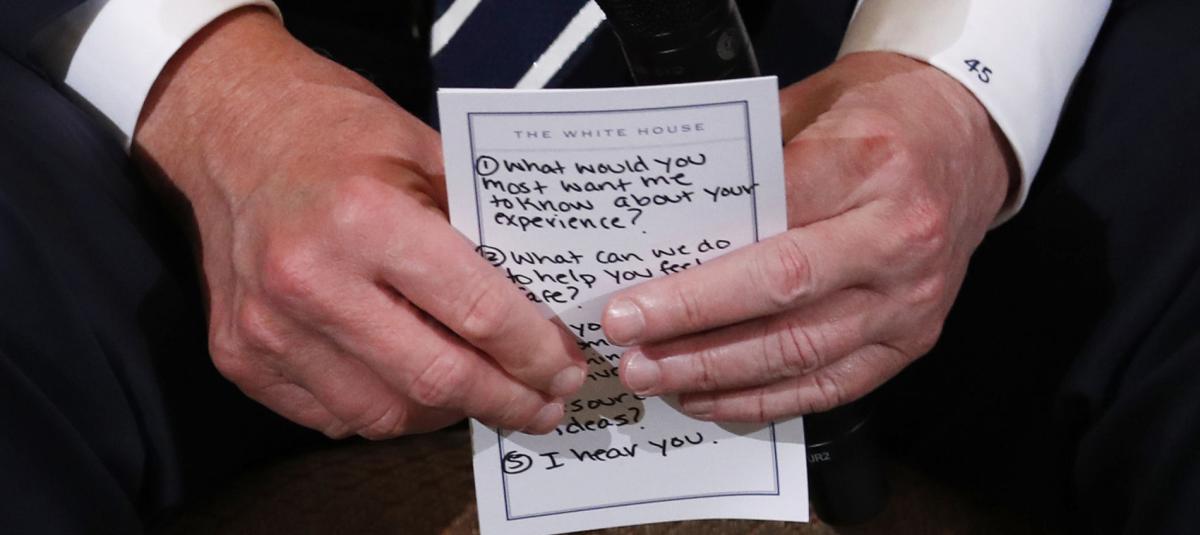 45
THE WHITE HOUSE
① What would you
most want me
to know about your
experience?
② What can we do
to help you
ideas?
⑤ I hear you.
JR2